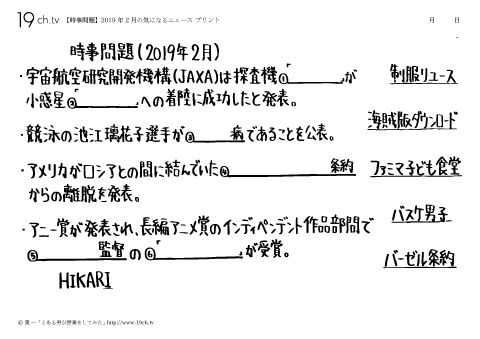 19ch.tv 【時事問題】2019年2月の気になるニュース プリント 月 日
時事問題(2019年2月)
・宇宙航空研究開発機構(JAXA)は探査機①「 」が
小惑星②「 」への着陸に成功したと発表。
・競泳の池江璃花子選手が③ 病であることを公表。
・アメリカがロシアとの間に結んでいた④ 条約
からの離脱を発表。
・アニー賞が発表され、長編アニメ賞のインディペンデント作品部門で
⑤ 監督の⑥「 」が受賞。
HIKARI
制服リユース
海賊版ダウンロード
ファミマ子ども食堂
バスケ男子
バーゼル条約
© 葉一「とある男が授業をしてみた」http://www.19ch.tv